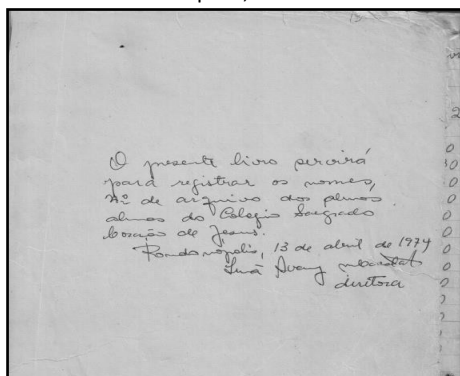 O presente livro servirá
para registrar os nomes,
nº de arquivo dos alunos
alunos do Colégio Sagrado
Coração de Jesus.
Rondonópolis, 13 de abril de 1974
Irmã
diretora